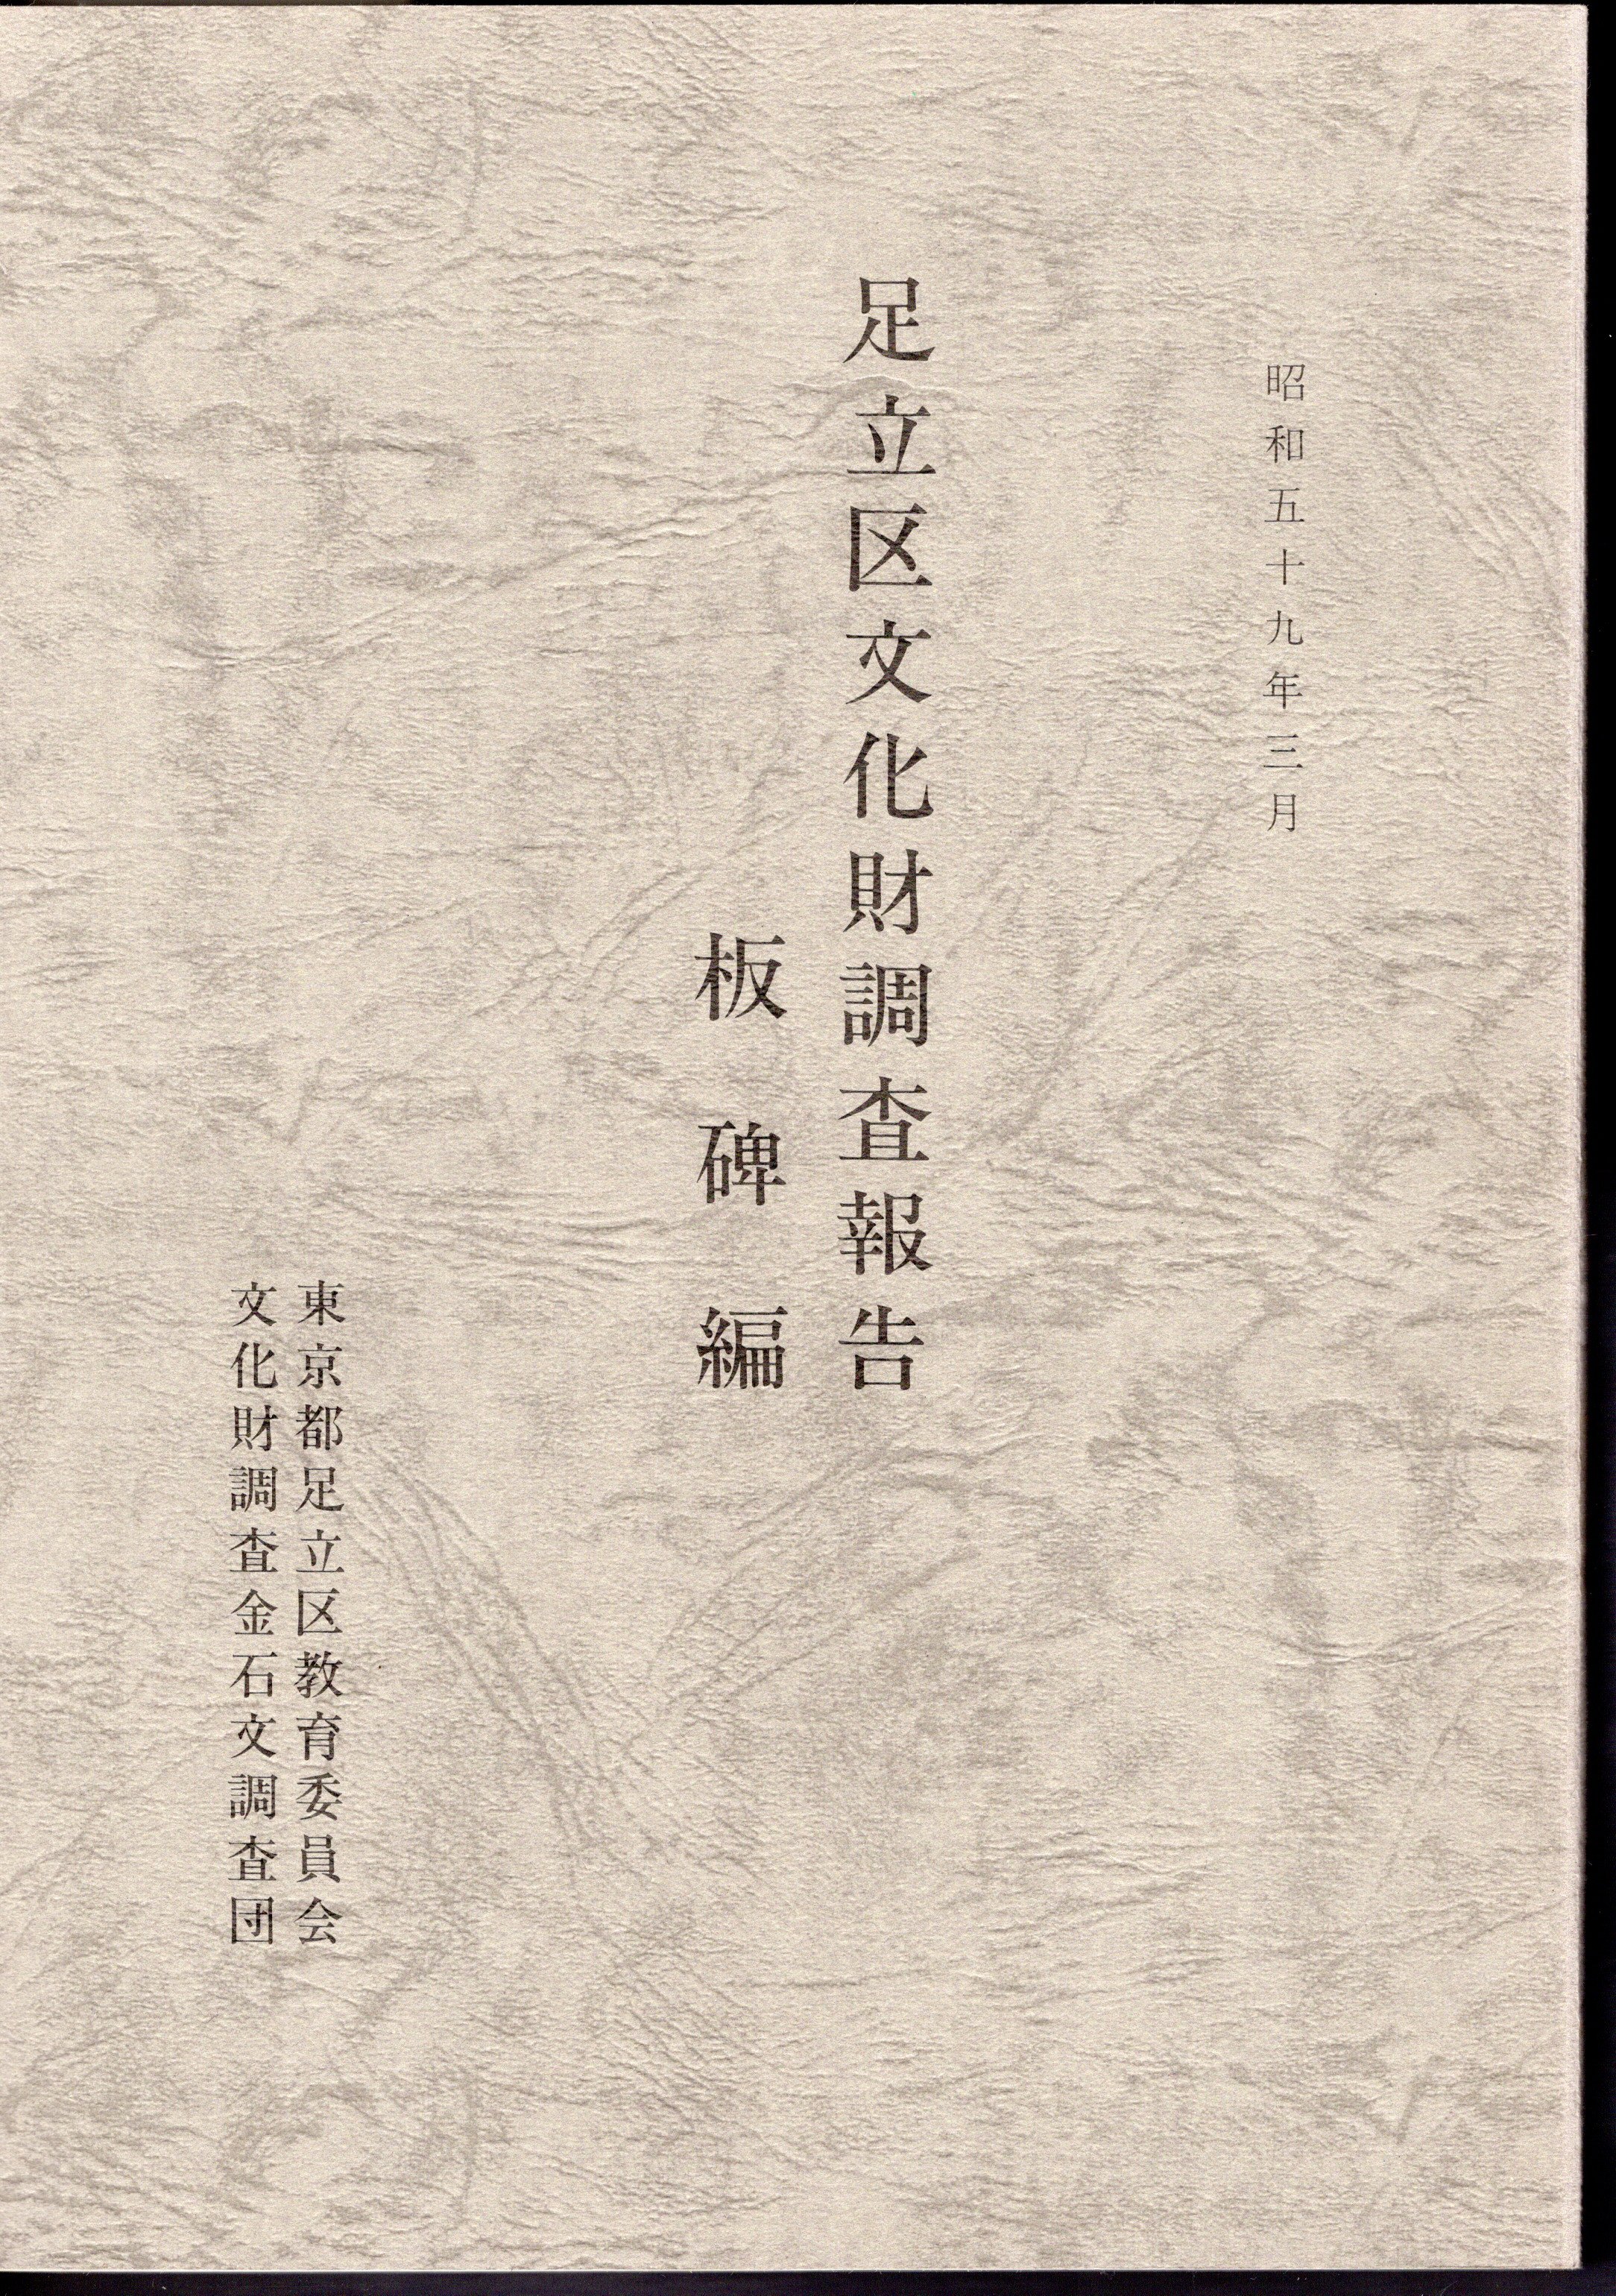 昭和五十九年三月
足立区文化財調査報告
板碑編
東京都足立区教育委員会
文化財調査金石文調査団